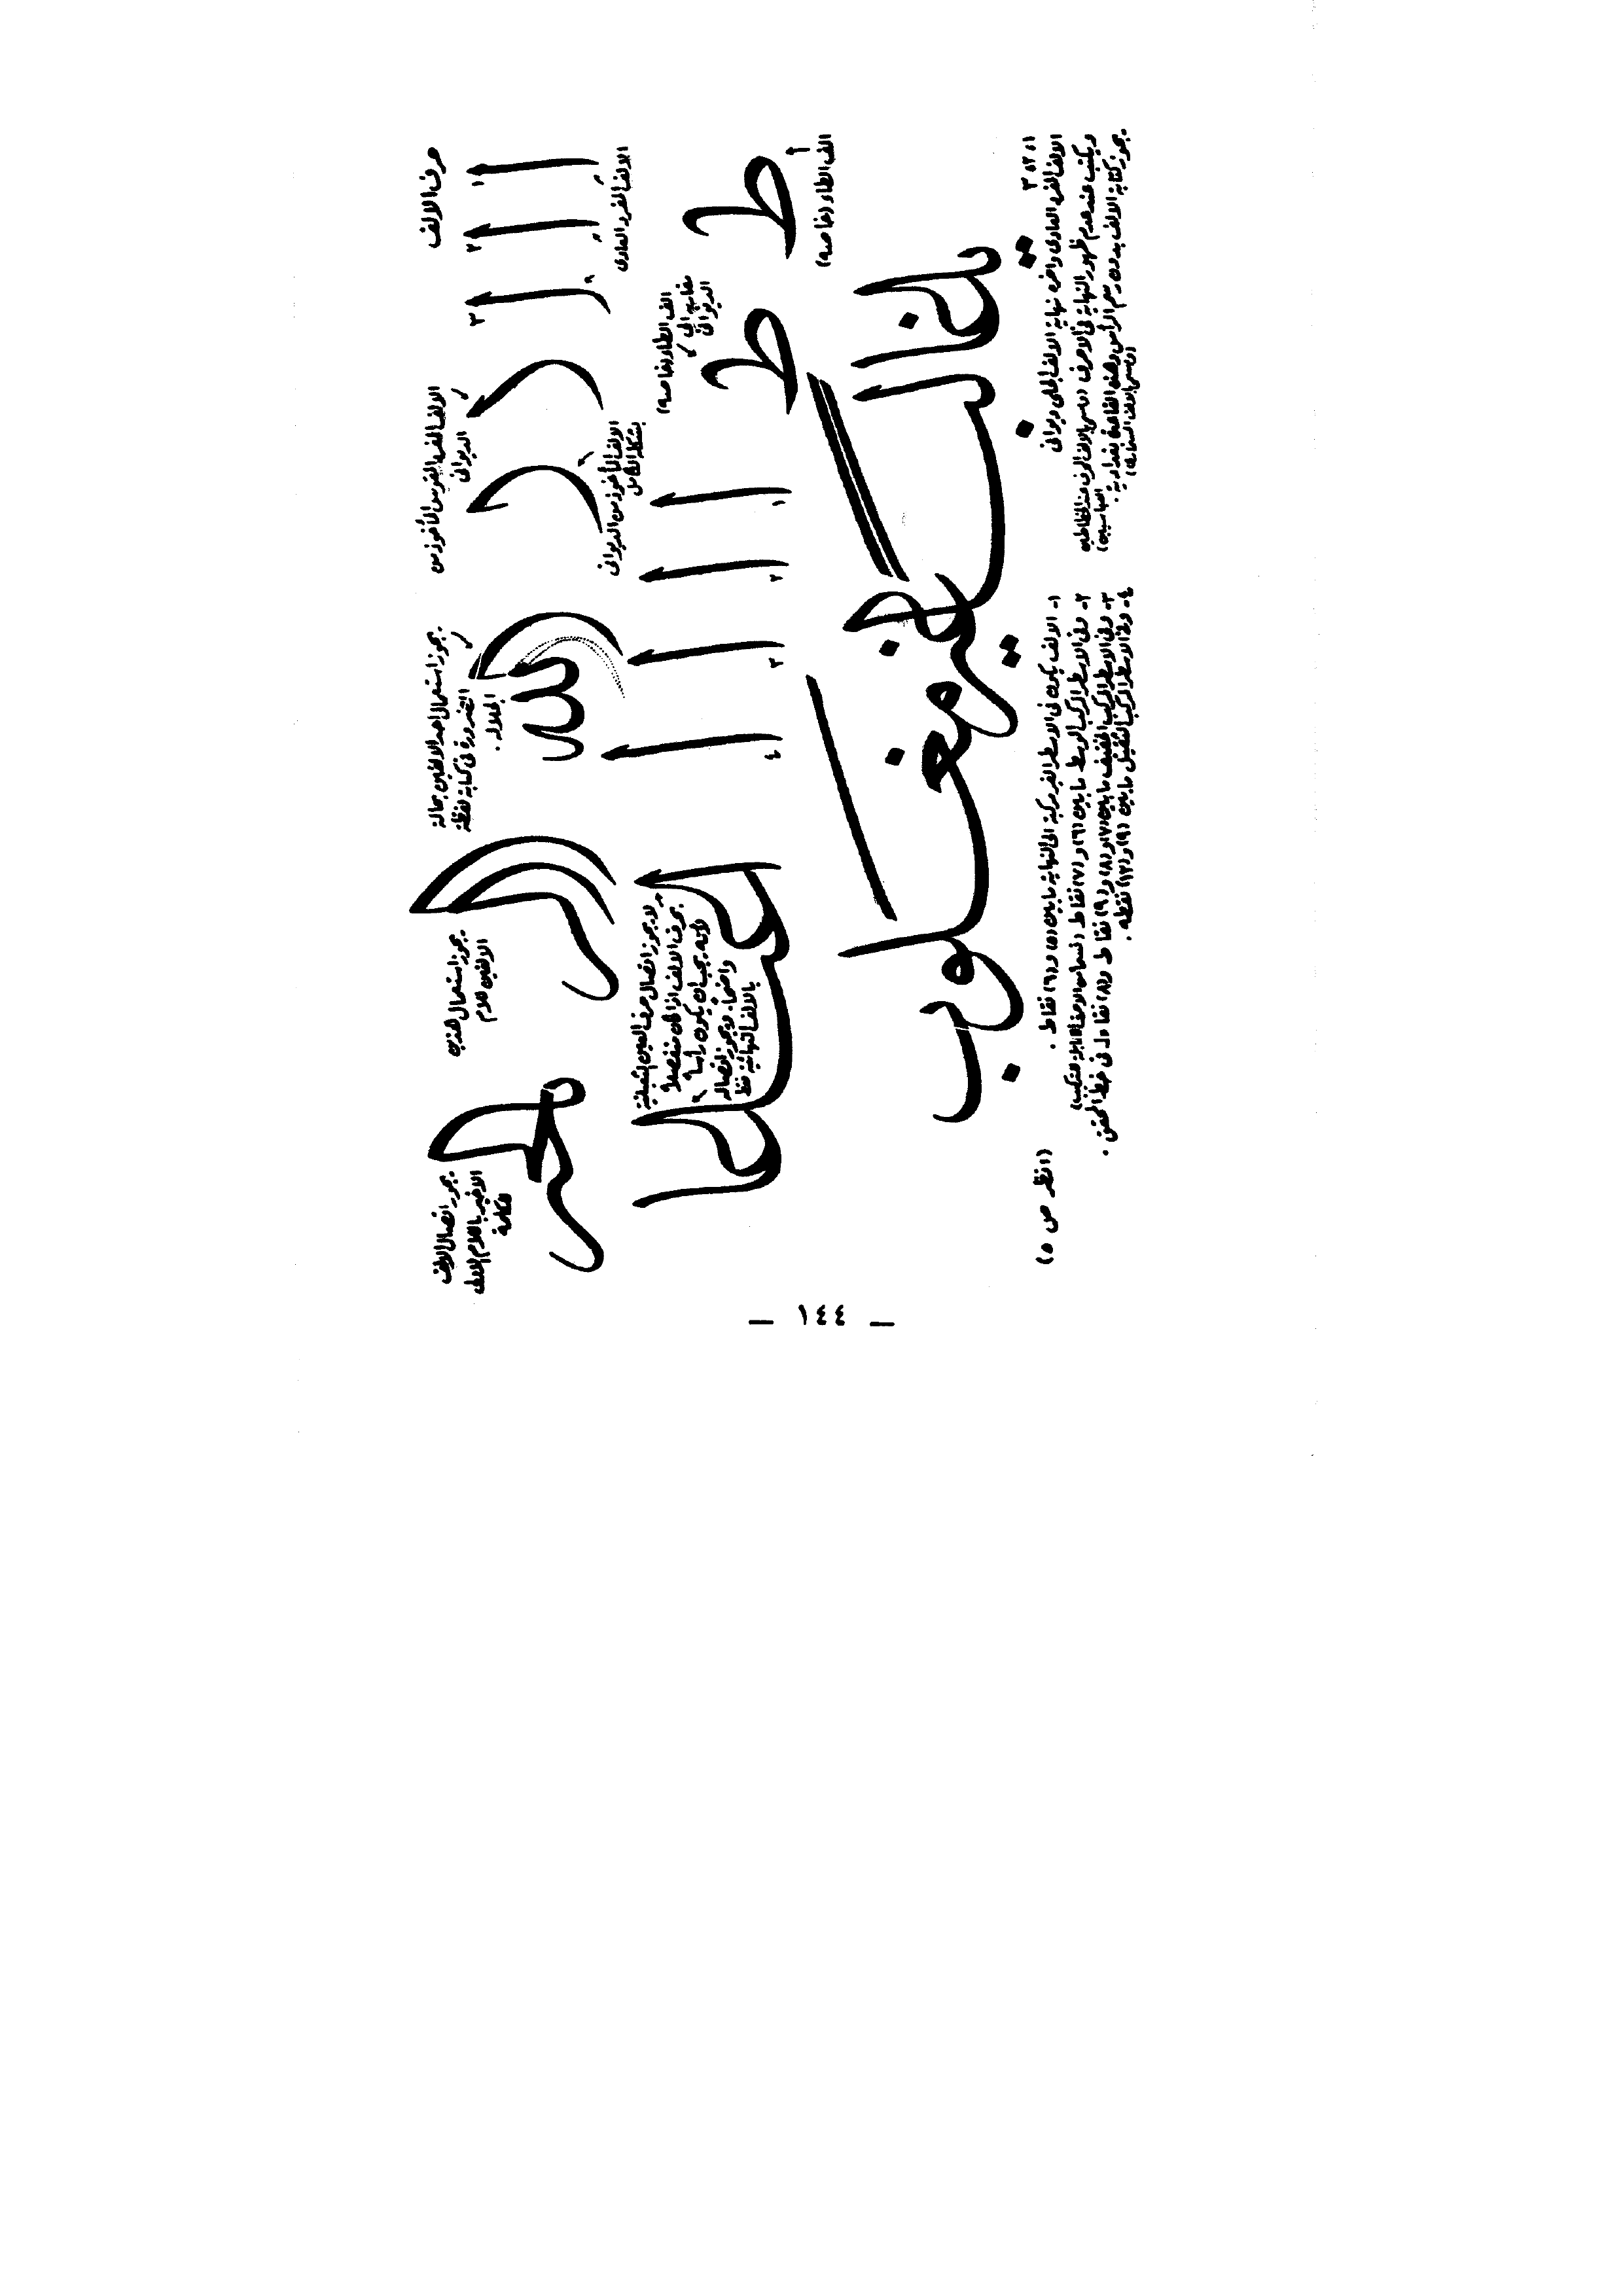 حرف الالف
١
٢
٣
الالف المفرد العادى
الالف المفرد المقوس المأخوذ من
الديوانى
الالف المأخوذ من الديوانى
بشكله الكامل
يجوز استعمال احد الالفين بحالة
الضرورة فى كتابة لفظة
الجلاله .
لله
يجوز استعمال هذين
الالفين كلام
يجوز اتصال الالف
الاخير باللام الاولى
ككلمة
ط
الف الطاء (خاصه)
ط
الف الطاء (خاصه)
مشابه الى
الديوانى
١
٢
٣
٤
لا يجوز اتصال حرف العين الثعبانية
بحرف الالف اذا كان منفصلاً
لأنه يجب ان يكون رأسه
واضحاً. ويجوز اتصاله
بالالف النهائية فقط
١ ، ٢ ، ٣
الالف المفرد العادى واخره نهاية الالف الجلى ديوانى
ويكتب عند عدم ظهور النهاية فى الاحرف
يجوز كتابة الالف بدون رسم الرأس وهذه القاعدة بغدادية .
١- الالف يكون فى الاسطر الغير مركبة الى النهاية ما بين (٥) و (٦) نقاط .
٢- وفى الاسطر المركب الوسط ما بين (٦) و (٧) نقاط
٣- وفى الاسطر المركب الخفيف ما بين (٧) و (٨) و (٩) نقاط و (٨) نقاط له فى خط المحقق .
٤- وفى الاسطر المركب الثقيل ما بين (٩) و (١٢) نقطه .
(انظر ص ٥)
— ١٤٤ —